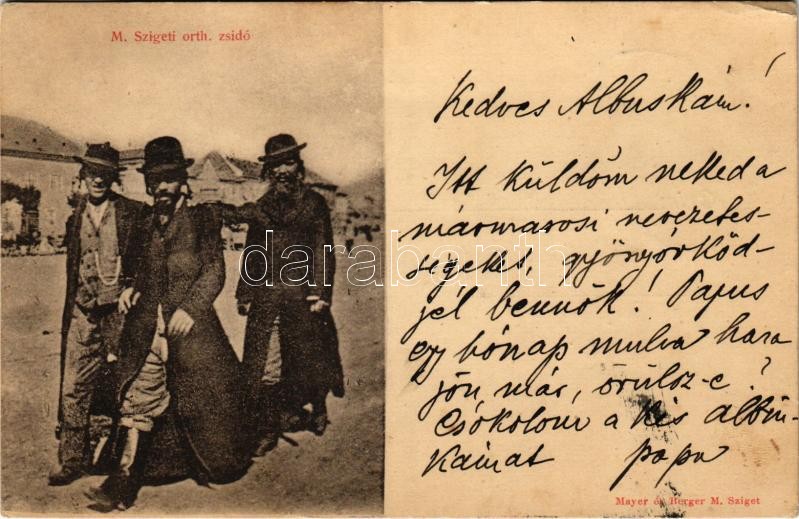 M. Szigeti orth. zsidó
Kedves Albuskám!
Itt küldöm neked a
mármarosi nevezetes-
ségeket, gyönyörköd-
jél bennök! Papus
egy hónap mulva haza
jön, már, örülsz-e?
Csókolom a kis albin-
kámat papa
darabanth
Mayer és Berger M. Sziget